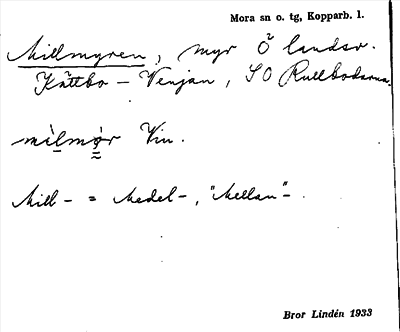 Mora sn o. tg, Kopparb. l.
Millmyren, myr Ö landsv.
Kättbo - Venjan, SO Rullbodarna.
mìlmø̀r Vin.
Mill- = Medel-, "Mellan"-
Bror Lindén 1933